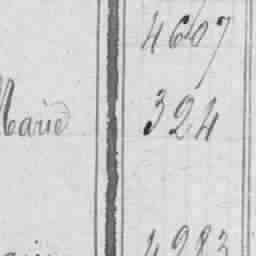 4607
Marie 324
4283